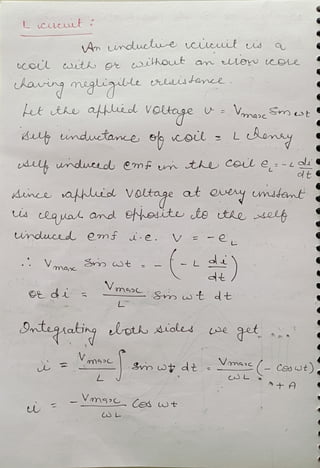 L circuit :
An inductive circuit is a
coil with or without an iron core
having negligible resistance.
Let the applied voltage v = Vmax Sin ωt
Self inductance of coil = L Henry
Self induced emf in the coil e_L = -L di/dt
Since applied voltage at every instant
is equal and opposite to the self
induced emf i.e. V = -e_L
∴ Vmax Sin ωt = -(-L di/dt)
or di = Vmax/L Sin ωt dt
Integrating both sides we get ....
i = Vmax/L ∫ Sin ωt dt = Vmax/ωL (- Cos ωt) + A
i = -Vmax/ωL Cos ωt